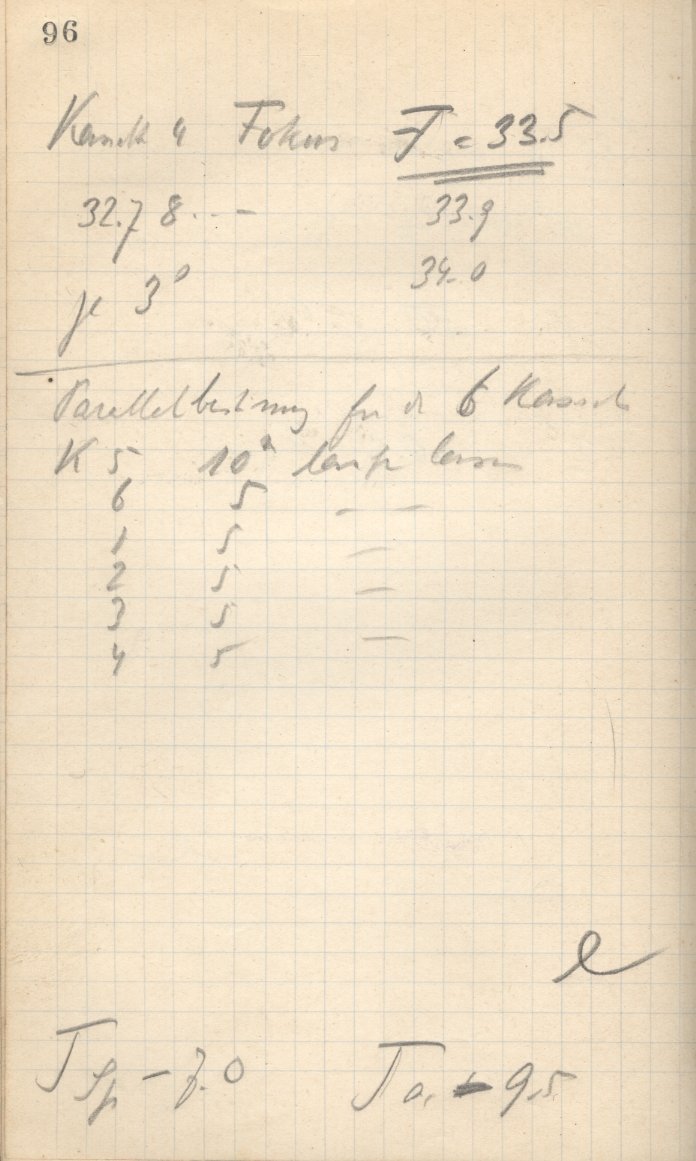 96
Kassette 4 Fokus F = 33.5
32.7 8... - 33.9
34.0
je 3°
Parallelbestimmung für die 6 Kassett
K 5 10 laufen lassen
6 5 - -
1 5 -
2 5 -
3 5 -
4 5
T Sp - 7.0 T a. - 9.5